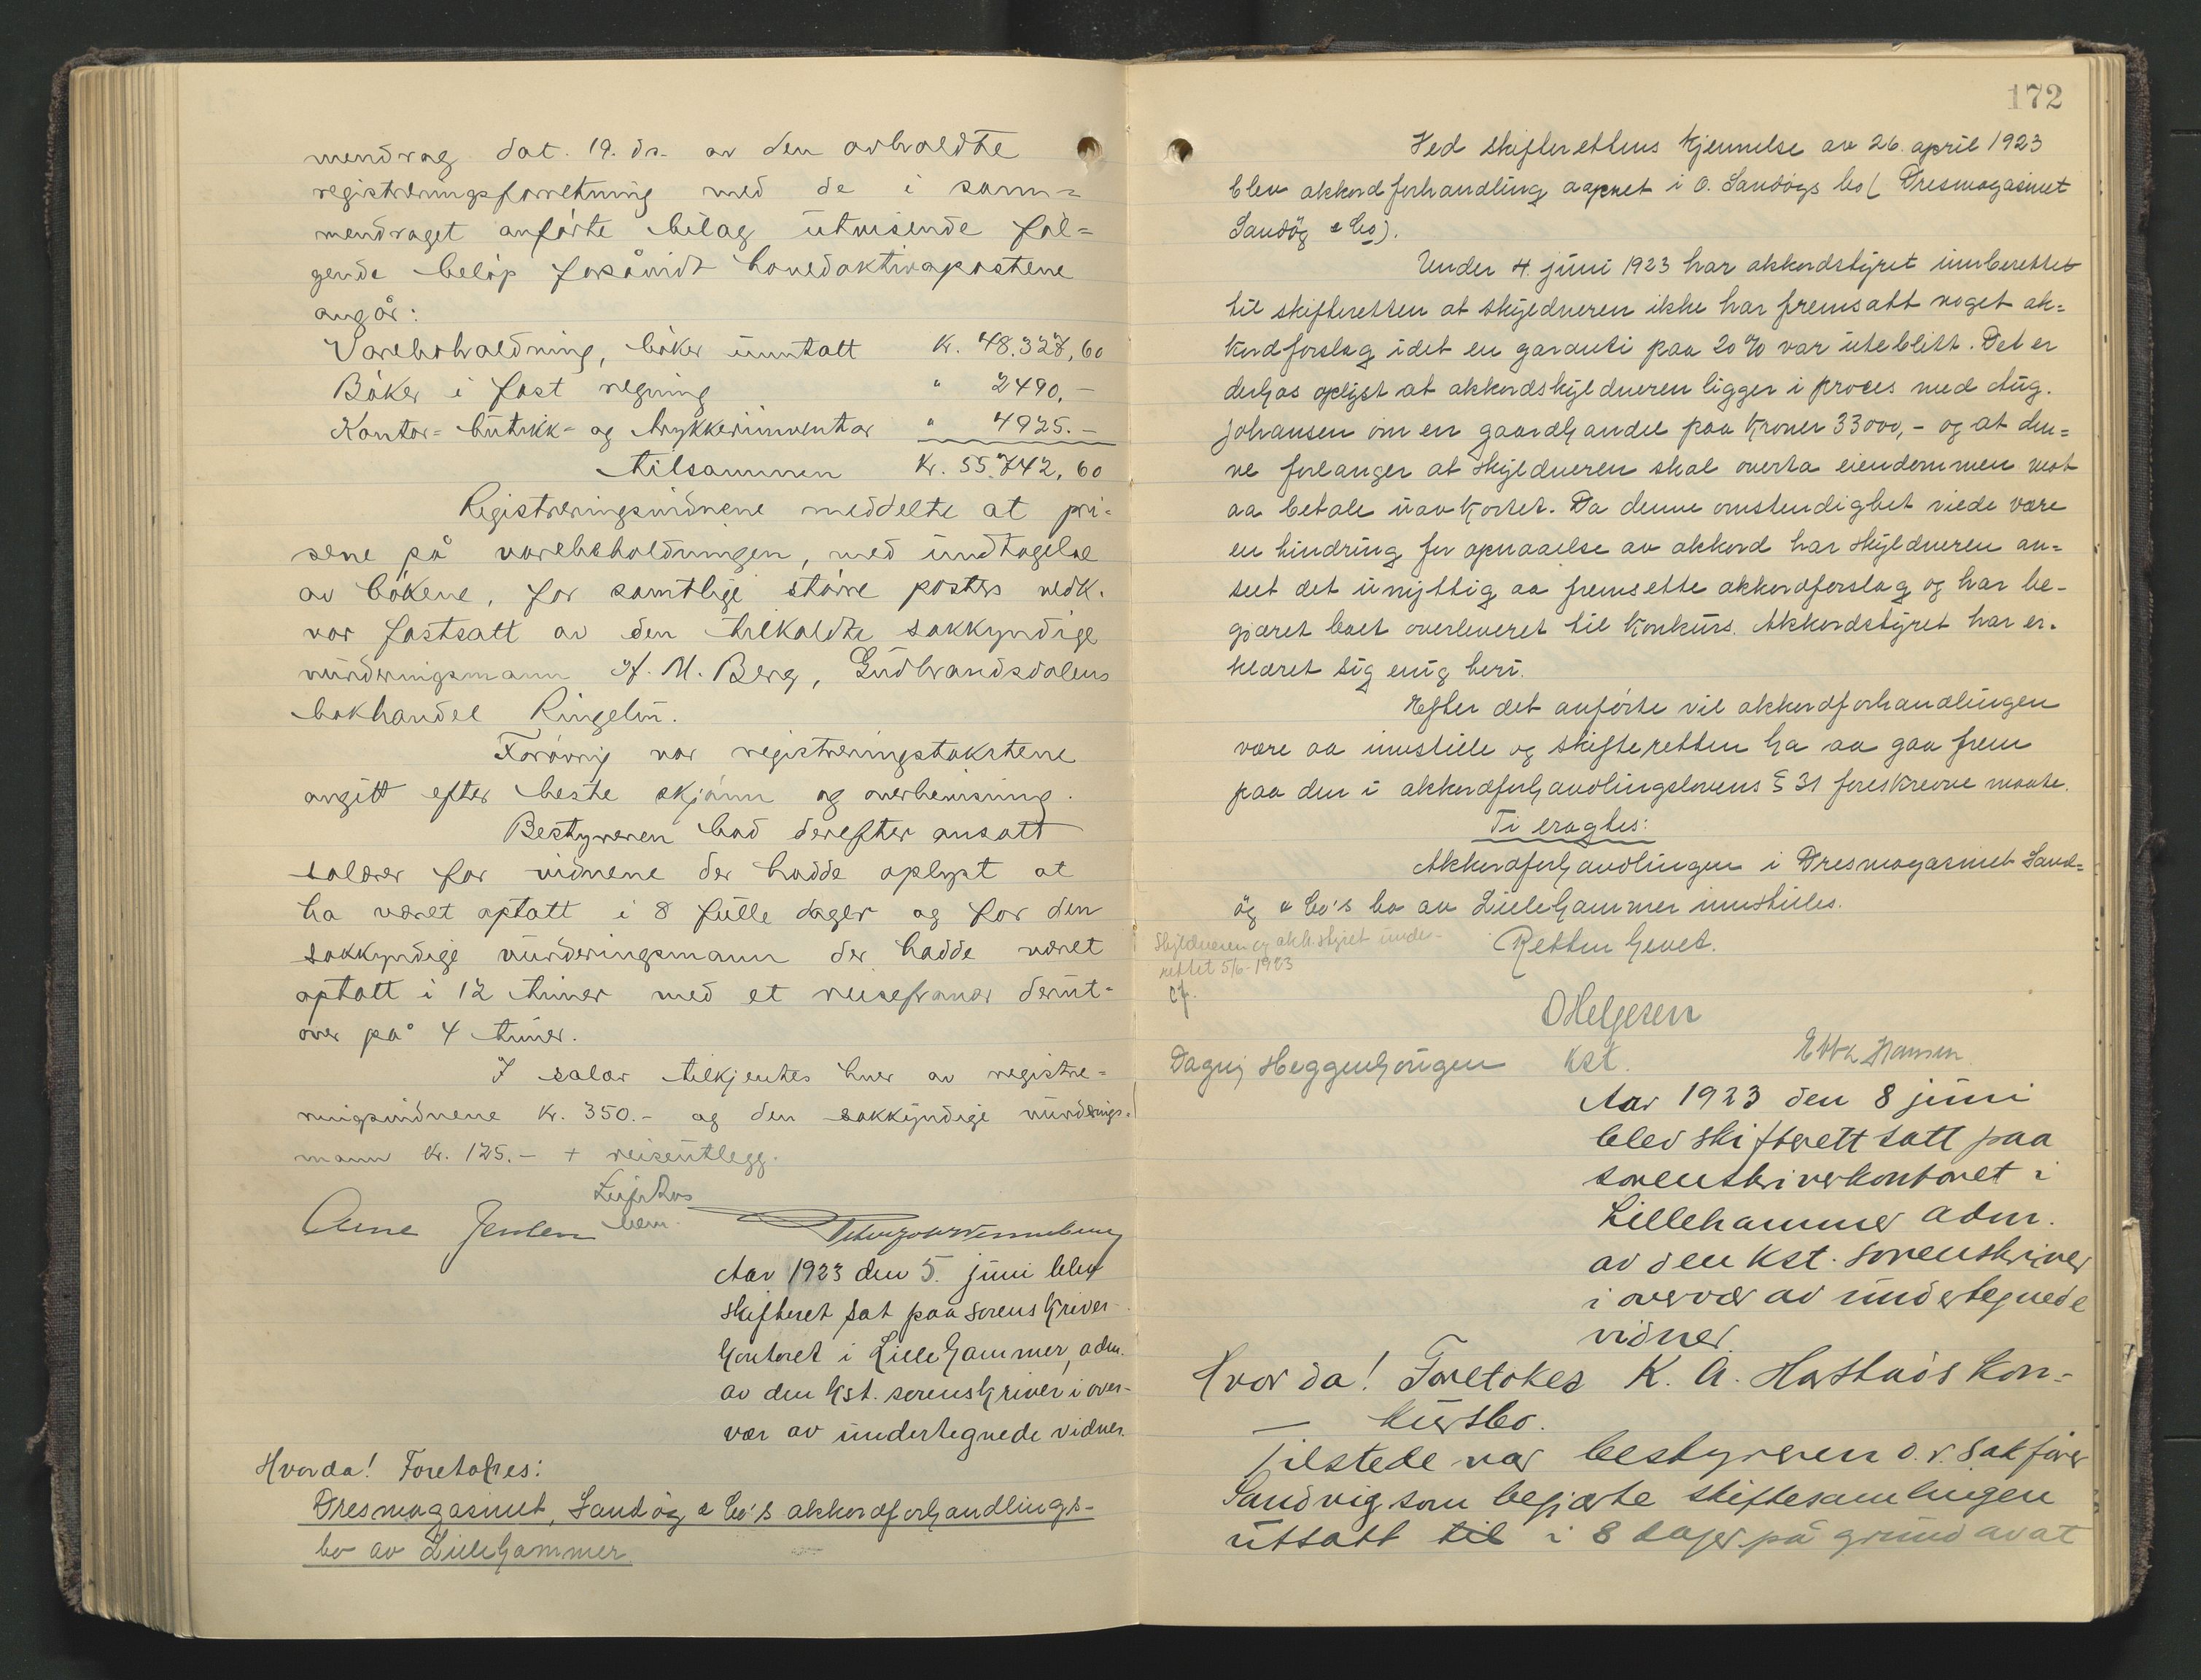 mendrag dat. 19. ds. av den avholdte
registreringsforretning med de i sam=
mendraget anførte bilag utvisende føl=
gende beløp forsåvidt hovedaktivapostene
angår:
Varebeholdning, bøker unntatt kr. 48.327,60
Bøker i fast regning " 2490,-
Kontor- butikk- og trykkeriinventar " 4925.-
tilsammen kr. 55.742,60
Registreringsvidnene meddelte at pri-
sene på varebeholdningen, med undtagelse
av bøkene, for samtlige større posters vedk.
var fastsatt av den tilkaldte sakkyndige
vurderingsmann H. M. Berg, Gudbrandsdalens
bokhandel Ringebu.
Forøvrig var registreringstakstene
angitt efter beste skjønn og overbevisning.
Bestyreren bad derefter ansatt
salærer for vidnene der hadde oplyst at
ha været optatt i 8 fulle dager og for den
sakkyndige vurderingsmann der hadde været
optatt i 12 timer med et reisefravær derut-
over på 4 timer.
I salær tilkjentes hver av registre-
ringsvidnene kr. 350.- og den sakkyndige vurderings-
mann kr. 125.- + reiseutlegg.
Arne Jensen
Aar 1923 den 5. juni blev
skifteret sat paa sorenskriver-
kontoret i Lillehammer, adm.
av den kst. sorenskriver i over-
vær av undertegnede vidner.
Hvorda! Foretokes:
Dresmagasinet, Sandøg & Co's akkordforhandlings-
bo av Lillehammer
172
Ved skifterettens kjennelse av 26. april 1923
blev akkordforhandling aapnet i O. Sandøgs bo (Dresmagasinet
Sandøg & Co).
Under 4. juni 1923 har akkordstyret innberettet
til skifteretten at skyldneren ikke har fremsatt noget ak=
kordforslag idet en garanti paa 20% var uteblitt. Det er
derhos oplyst at akkordskyldneren ligger i proces med Aug.
Johansen om en gaardhandel paa kroner 33000,- og at den=
ne forlanger at skyldneren skal overta eiendommen mot
aa betale uavkortet. Da denne omstendighet vilde være
en hindring for opnaaelse av akkord har skyldneren an=
seet det unyttig aa fremsette akkordforslag og har be-
gjæret boet overleveret til konkurs. Akkordstyret har er-
klæret sig enig heri.
Efter det anførte vil akkordforhandlingen
være aa innstille og skifteretten ha aa gaa frem
paa den i akkordforhandlingslovens § 31 foreskrevne maate.
Ti eragtes:
Akkordforhandlingen i Dresmagasinet Sand=
øg & Co's bo av Lillehammer innstilles.
Skyldneren og akk.styret under-
rettet 5/6-1923
Retten hevet.
OHelgesen
kst.
Dagny Heggenhougen
Ebba Hansen
Aar 1923 den 8 juni
blev skifterett satt paa
sorenskriverkontoret i
Lillehammer adm.
av den kst. sorenskriver
i overvær av undertegnede
vidner.
Hvorda! Foretokes K. A. Hastads kon-
kursbo.
Tilstede var bestyreren o.r.sakfører
Sandvig som begjærte skiftesamlingen
utsatt til i 8 dager på grund av at